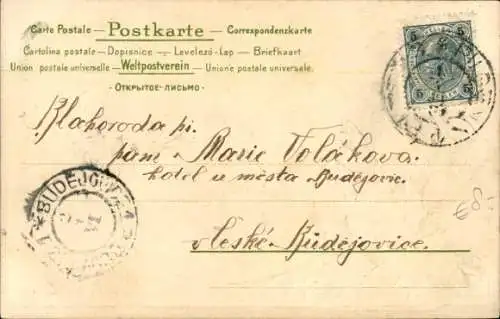 Carte Postale — Postkarte — Correspondenzkarte
Cartolina postale — Dopisnice — Levelező-Lap — Briefkaart
Union postale universelle — Weltpostverein — Unione postale universale.
· ОТКРЫТОЕ-ПИСЬМО ·
5 5
Blahoroda pí.
paní Marie Volákova
hotel u města Budějovic.
České Budějovice.
BUDĚJOV